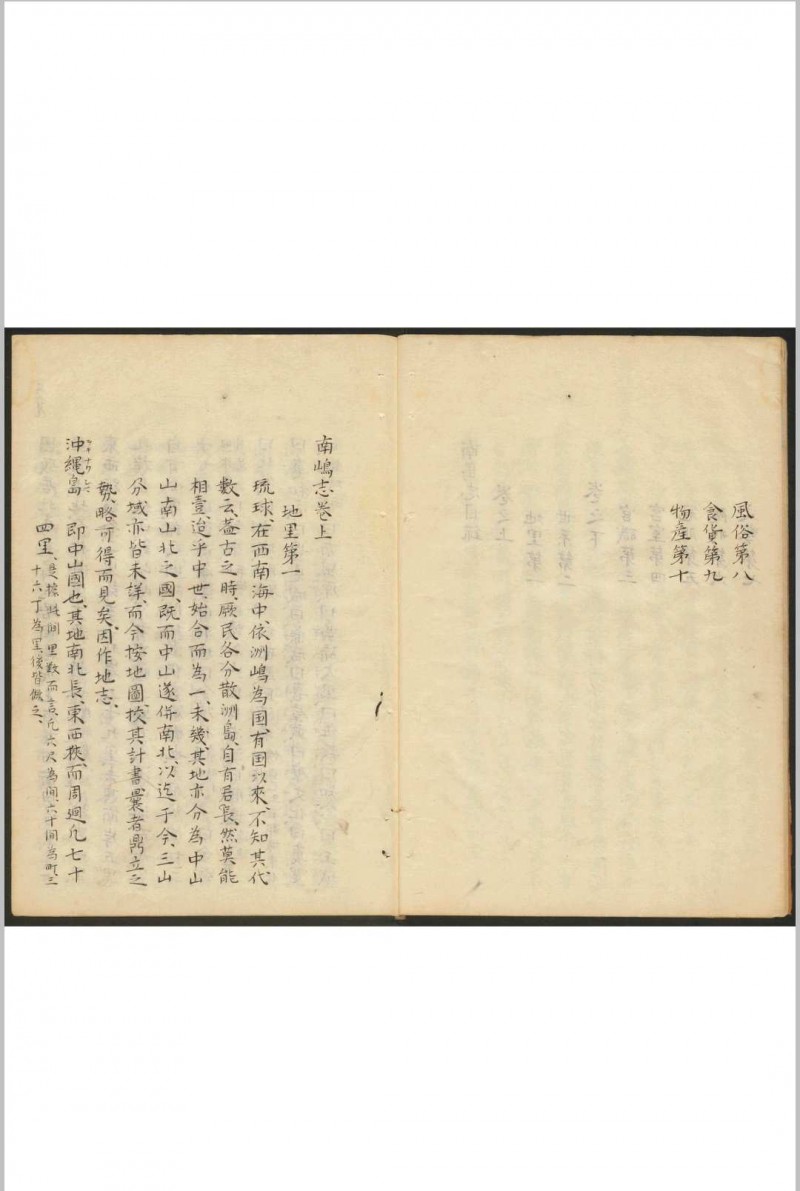 風俗第八
食貨第九
物產第十
南嶋志巻上
地里第一
琉球、在西南海中、依洲嶋為国、有国以來、不知其代
數云、葢古之時、厥民各分散洲島、自有君長、然莫能
相壹、迨乎中世、始合而為一、未幾、其地亦分為中山
山南山北之國、既而中山遂併南北、以迄于今、三山
分域亦皆未詳、而今按地圖、挍其計書、曩者鼎立之
勢、略可得而見矣、因作地志、
沖縄島 即中山國也、其地南北長、東西狹、而周廻凡七十
四里、是據此間里數而言、凡六尺為間、六十間為町、三
十六丁為里、後皆倣之、